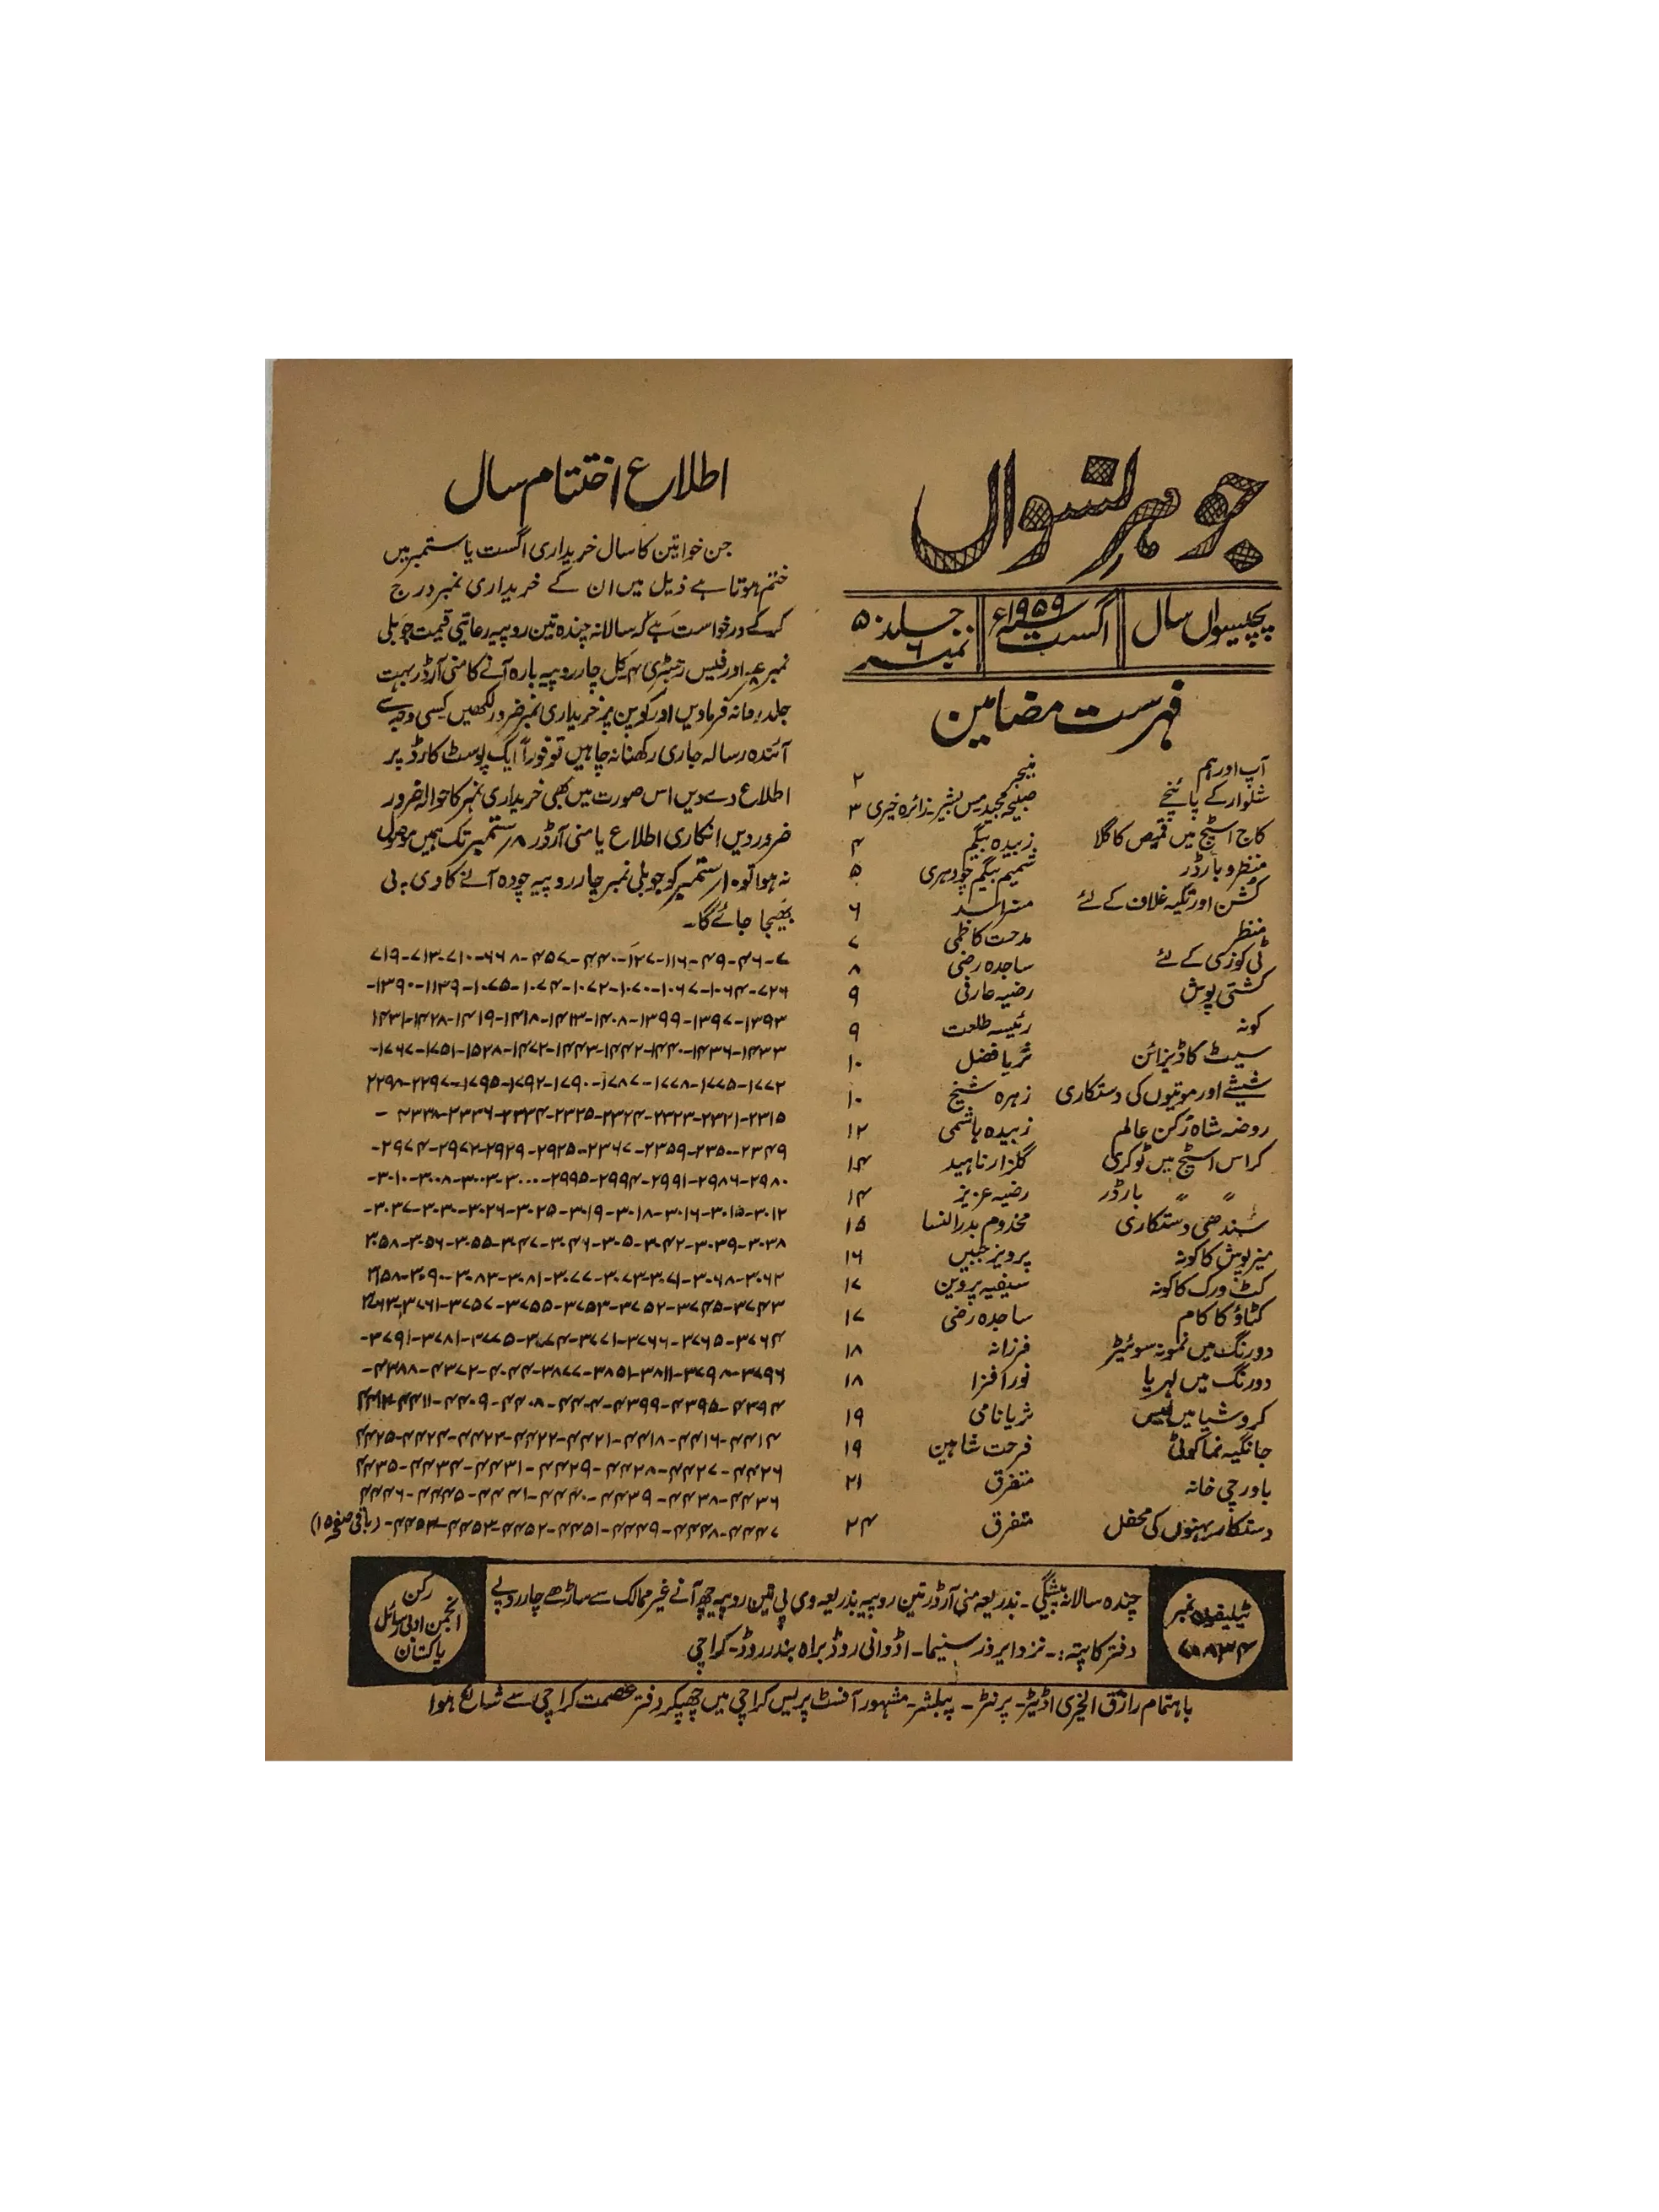 جوہر نسواں
پچیسواں سال
اگست ۱۹۵۹ء
جلد ۵۰
نمبر ۶
فہرست مضامین
آپ اور ہم منیجر ۲
شلوار کے پائنچے صبیحہ مجید مس بشیر۔ زائرہ خیری ۳
کاج اسٹیچ میں قمیص کا گلا زبیدہ بیگم ۴
منظر و بارڈر شمیم بیگم چودہری ۵
کشن اور تکیہ غلاف کے لئے ۶
منظر مدحت کاظمی ۷
ٹی کوزی کے لئے ساجدہ رضی ۸
کشتی پوش رضیہ عارفی ۹
کونہ رئیسہ طلعت ۹
سیٹ کا ڈیزائن ثریا فضل ۱۰
شیشے اور موتیوں کی دستکاری زہرہ شیخ ۱۰
روضہ شاہ رکن عالم زبیدہ ہاشمی ۱۲
کراس اسٹیچ میں ٹوکری گلزار ناہید ۱۴
〃 〃 بارڈر رضیہ عزیز ۱۴
سندھی دستکاری مخدوم بدرالنسا ۱۵
میز پوش کا کونہ پرویز جبیں ۱۶
کٹ ورک کا کونہ سیفیہ پروین ۱۷
کٹاؤ کا کام ساجدہ رضی ۱۷
دو رنگ میں نمونہ سوئیٹر فرزانہ ۱۸
دو رنگ میں لہریا نور افزا ۱۸
کروشیا میں لیس ثریا نامی ۱۹
جانگیہ نما کوٹی فرحت شاہین ۱۹
باورچی خانہ متفرق ۲۱
دستکار بہنوں کی محفل متفرق ۲۴
اطلاع اختتام سال
جن خواتین کا سال خریداری اگست یا ستمبر میں
ختم ہوتا ہے ذیل میں ان کے خریداری نمبر درج
کرکے درخواست ہے کہ سالانہ چندہ تین روپیہ رعایتی قیمت جوبلی
نمبر اور فیس رجسٹری کل چار روپیہ بارہ آنے کا منی آرڈر بہت
جلد روانہ فرمادیں اور کوپن پر خریداری نمبر ضرور لکھیں کسی وجہ سے
آئندہ رسالہ جاری رکھنا نہ چاہیں تو فوراً ایک پوسٹ کارڈ پر
اطلاع دے دیں اس صورت میں بھی خریداری نمبر کا حوالہ ضرور
ضرور دیں انکاری اطلاع یا منی آرڈر ۸ ستمبر تک ہمیں موصول
نہ ہوا تو ۱۰ ستمبر کو جوبلی نمبر چار روپیہ چودہ آنے کا وی پی
بھیجا جائے گا۔
۷-۴۶-۴۹-۱۱۶-۱۲۷-۴۴۰-۴۵۷-۶۶۸-۷۱۰-۷۱۳-۷۱۹
۷۲۶-۱۰۶۴-۱۰۶۷-۱۰۷۰-۱۰۷۲-۱۰۷۴-۱۰۷۵-۱۱۳۹-۱۳۹۰-
۱۳۹۳-۱۳۹۷-۱۳۹۹-۱۴۰۸-۱۴۱۳-۱۴۱۷-۱۴۱۹-۱۴۲۸-۱۴۳۱
۱۴۳۳-۱۴۳۶-۱۴۴۰-۱۴۴۲-۱۴۴۳-۱۴۷۲-۱۵۲۸-۱۷۵۱-۱۷۶۷-
۱۷۷۲-۱۷۷۵-۱۷۷۸-۱۷۸۷-۱۷۹۰-۱۷۹۲-۱۷۹۵-۲۲۹۷-۲۲۹۸
۲۳۱۵-۲۳۲۱-۲۳۲۳-۲۳۲۴-۲۳۲۵-۲۳۳۴-۲۳۳۶-۲۳۳۸-
۲۳۴۹-۲۳۵۰-۲۳۵۹-۲۳۶۷-۲۹۲۵-۲۹۲۹-۲۹۷۲-۲۹۷۴-
۲۹۸۰-۲۹۸۶-۲۹۹۱-۲۹۹۴-۲۹۹۵-۳۰۰۰-۳۰۰۳-۳۰۰۸-۳۰۱۰-
۳۰۱۲-۳۰۱۵-۳۰۱۶-۳۰۱۸-۳۰۱۹-۳۰۲۵-۳۰۲۶-۳۰۳۰-۳۰۳۷-
۳۰۳۸-۳۰۳۹-۳۰۴۲-۳۰۵۰-۳۰۴۶-۳۰۴۷-۳۰۵۵-۳۰۵۶-۳۰۵۸
۳۰۶۲-۳۰۶۸-۳۰۷۱-۳۰۷۳-۳۰۷۷-۳۰۸۱-۳۰۸۳-۳۰۹۰
۳۷۴۳-۳۷۴۵-۳۷۵۲-۳۷۵۳-۳۷۵۵-۳۷۵۷-۳۷۶۱-۳۷۶۳
۳۷۶۴-۳۷۶۵-۳۷۶۶-۳۷۷۱-۳۷۷۴-۳۷۷۵-۳۷۸۱-۳۷۹۱-
۳۷۹۶-۳۷۹۸-۳۸۱۱-۳۸۵۱-۳۸۷۷-۴۰۴۰-۴۳۷۲-۴۳۸۸-
۴۳۹۴-۴۳۹۵-۴۳۹۹-۴۴۰۰-۴۴۰۷-۴۴۰۹-۴۴۱۱
۴۴۱۴-۴۴۱۶-۴۴۱۷-۴۴۲۱-۴۴۲۲-۴۴۲۳-۴۴۲۴-۴۴۲۵
۴۴۲۶-۴۴۲۷-۴۴۲۸-۴۴۲۹-۴۴۳۱-۴۴۳۴-۴۴۳۵
۴۴۳۶-۴۴۳۸-۴۴۳۹-۴۴۴۰-۴۴۴۱-۴۴۴۵-۴۴۴۶
۴۴۴۷-۴۴۴۸-۴۴۴۹-۴۴۵۱-۴۴۵۲-۴۴۵۳-۴۴۵۴- (باقی صفحہ ۱۵)
ٹیلیفون نمبر
چندہ سالانہ پیشگی۔ بذریعہ منی آرڈر تین روپیہ بذریعہ وی پی تین روپیہ چھ آنے غیر ممالک سے ساڑھے چار روپے
دفتر کا پتہ:۔ نزد ایروز سنیما۔ اڈوانی روڈ براہ بندر روڈ۔ کراچی
رکن
انجمن ادبی رسائل
پاکستان
باہتمام رازق الخیری اڈیٹر۔ پرنٹر۔ پبلشر۔ مشہور آفسٹ پریس کراچی میں چھپکر دفتر عصمت کراچی سے شایع ہوا